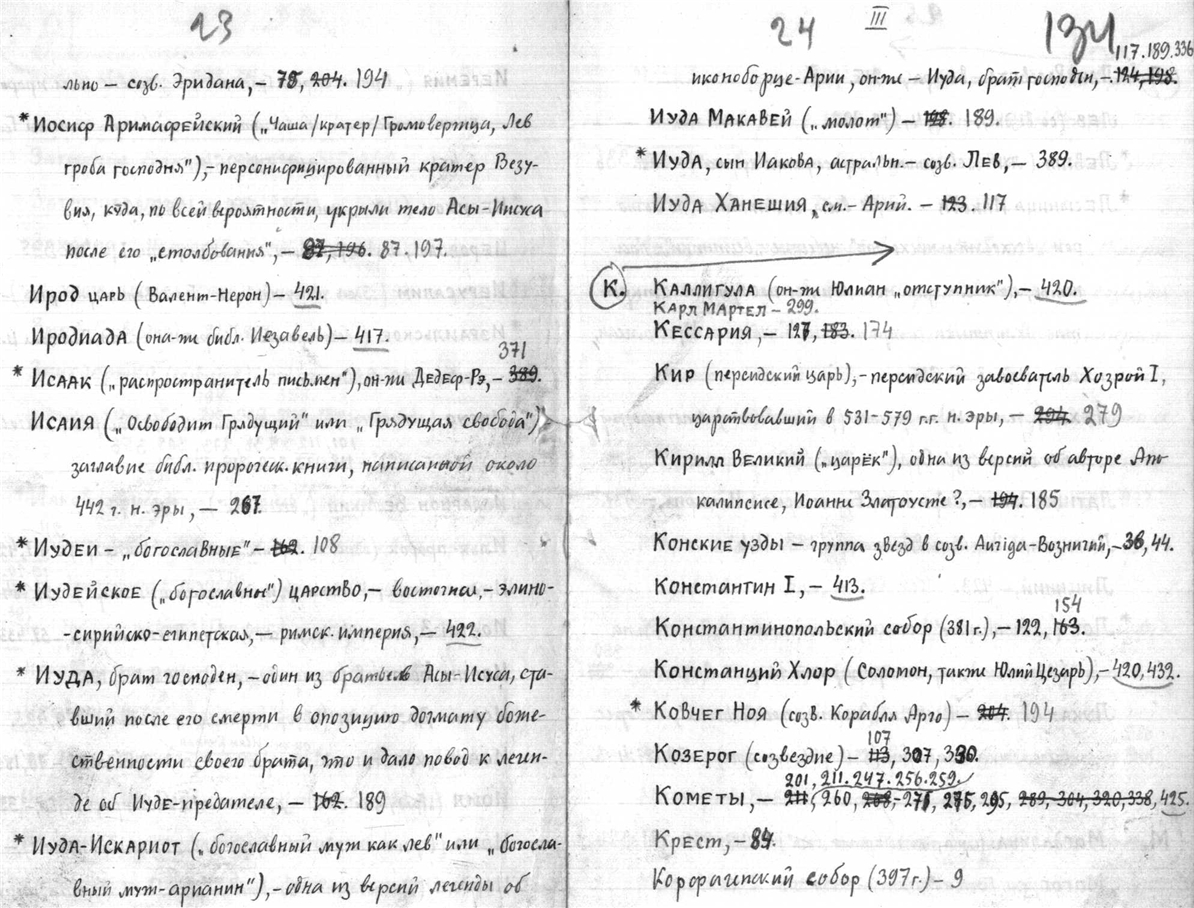 23
льно – созв. Эридана, – 75, 204. 194
* Иосиф Аримафейский („Чаша/кратер/Громовержца, Лев
гроба господня"), – персонифицированный кратер Везу-
вия, куда, по всей вероятности, укрыли тело Асы-Иисуса
после его „столбования", – 87, 196. 87. 197.
Ирод царь (Валент-Нерон) – 421.
Иродиада (она-же библ. Иезавель) – 417.
371
* Исаак („распространитель письмен"), он-же Дедеф-Рэ, – 389.
Исаия („Освободит Грядущий" или „Грядущая свобода")
заглавие библ. пророческ. книги, написанной около
442 г. н. эры, – 267.
* Иудеи – „богославные" – 162. 108
* Иудейское („богославное") царство, – восточная, – элино-
-сирийско-египетская, – римск. империя, – 422.
* Иуда, брат господен, – один из братьев Асы-Исуса, ста-
вший после его смерти в опозицию догмату боже-
ственности своего брата, что и дало повод к леген-
де об Иуде-предателе, – 162. 189
* Иуда-Искариот („богославный муж как лев" или „богосла-
вный муж-арианин"), – одна из версий легенды об
24 III 134
117.189.336
иконоборце-Арии, он-же – Иуда, брат господен, – 124, 198.
Иуда Макавей („молот") – 198. 189.
* Иуда, сын Иакова, астральн. – созв. Лев, – 389.
Иуда Ханешия, см. – Арий. – 123. 117
К. Каллигула (он-же Юлиан „отступник"), – 420.
Карл Мартел – 299.
Кессария, – 127, 183. 174
Кир (персидский царь), – персидский завоеватель Хозрой I,
царствовавший в 531-579 г.г. н. эры, – 294. 279
Кирилл Великий („царёк"), одна из версий об авторе Апо-
калипсисе, Иоанне Златоусте?, – 194. 185
Конские узды – группа звезд в созв. Auriga-Возничий, – 36, 44.
Константин I, – 413.
154
Константинопольский собор (381 г.), – 122, 163.
Констанций Хлор (Соломон, также Юлий Цезарь), – 420, 432.
* Ковчег Ноя (созв. Корабля Арго) – 204. 194
107
Козерог (созвездие) – 113, 307, 390.
201, 211. 247. 256. 259.
Кометы, – 211, 260, 268, 271, 275, 295, 289, 304, 320, 338, 425.
Крест, – 84.
Корфагенский собор (397 г.) – 9